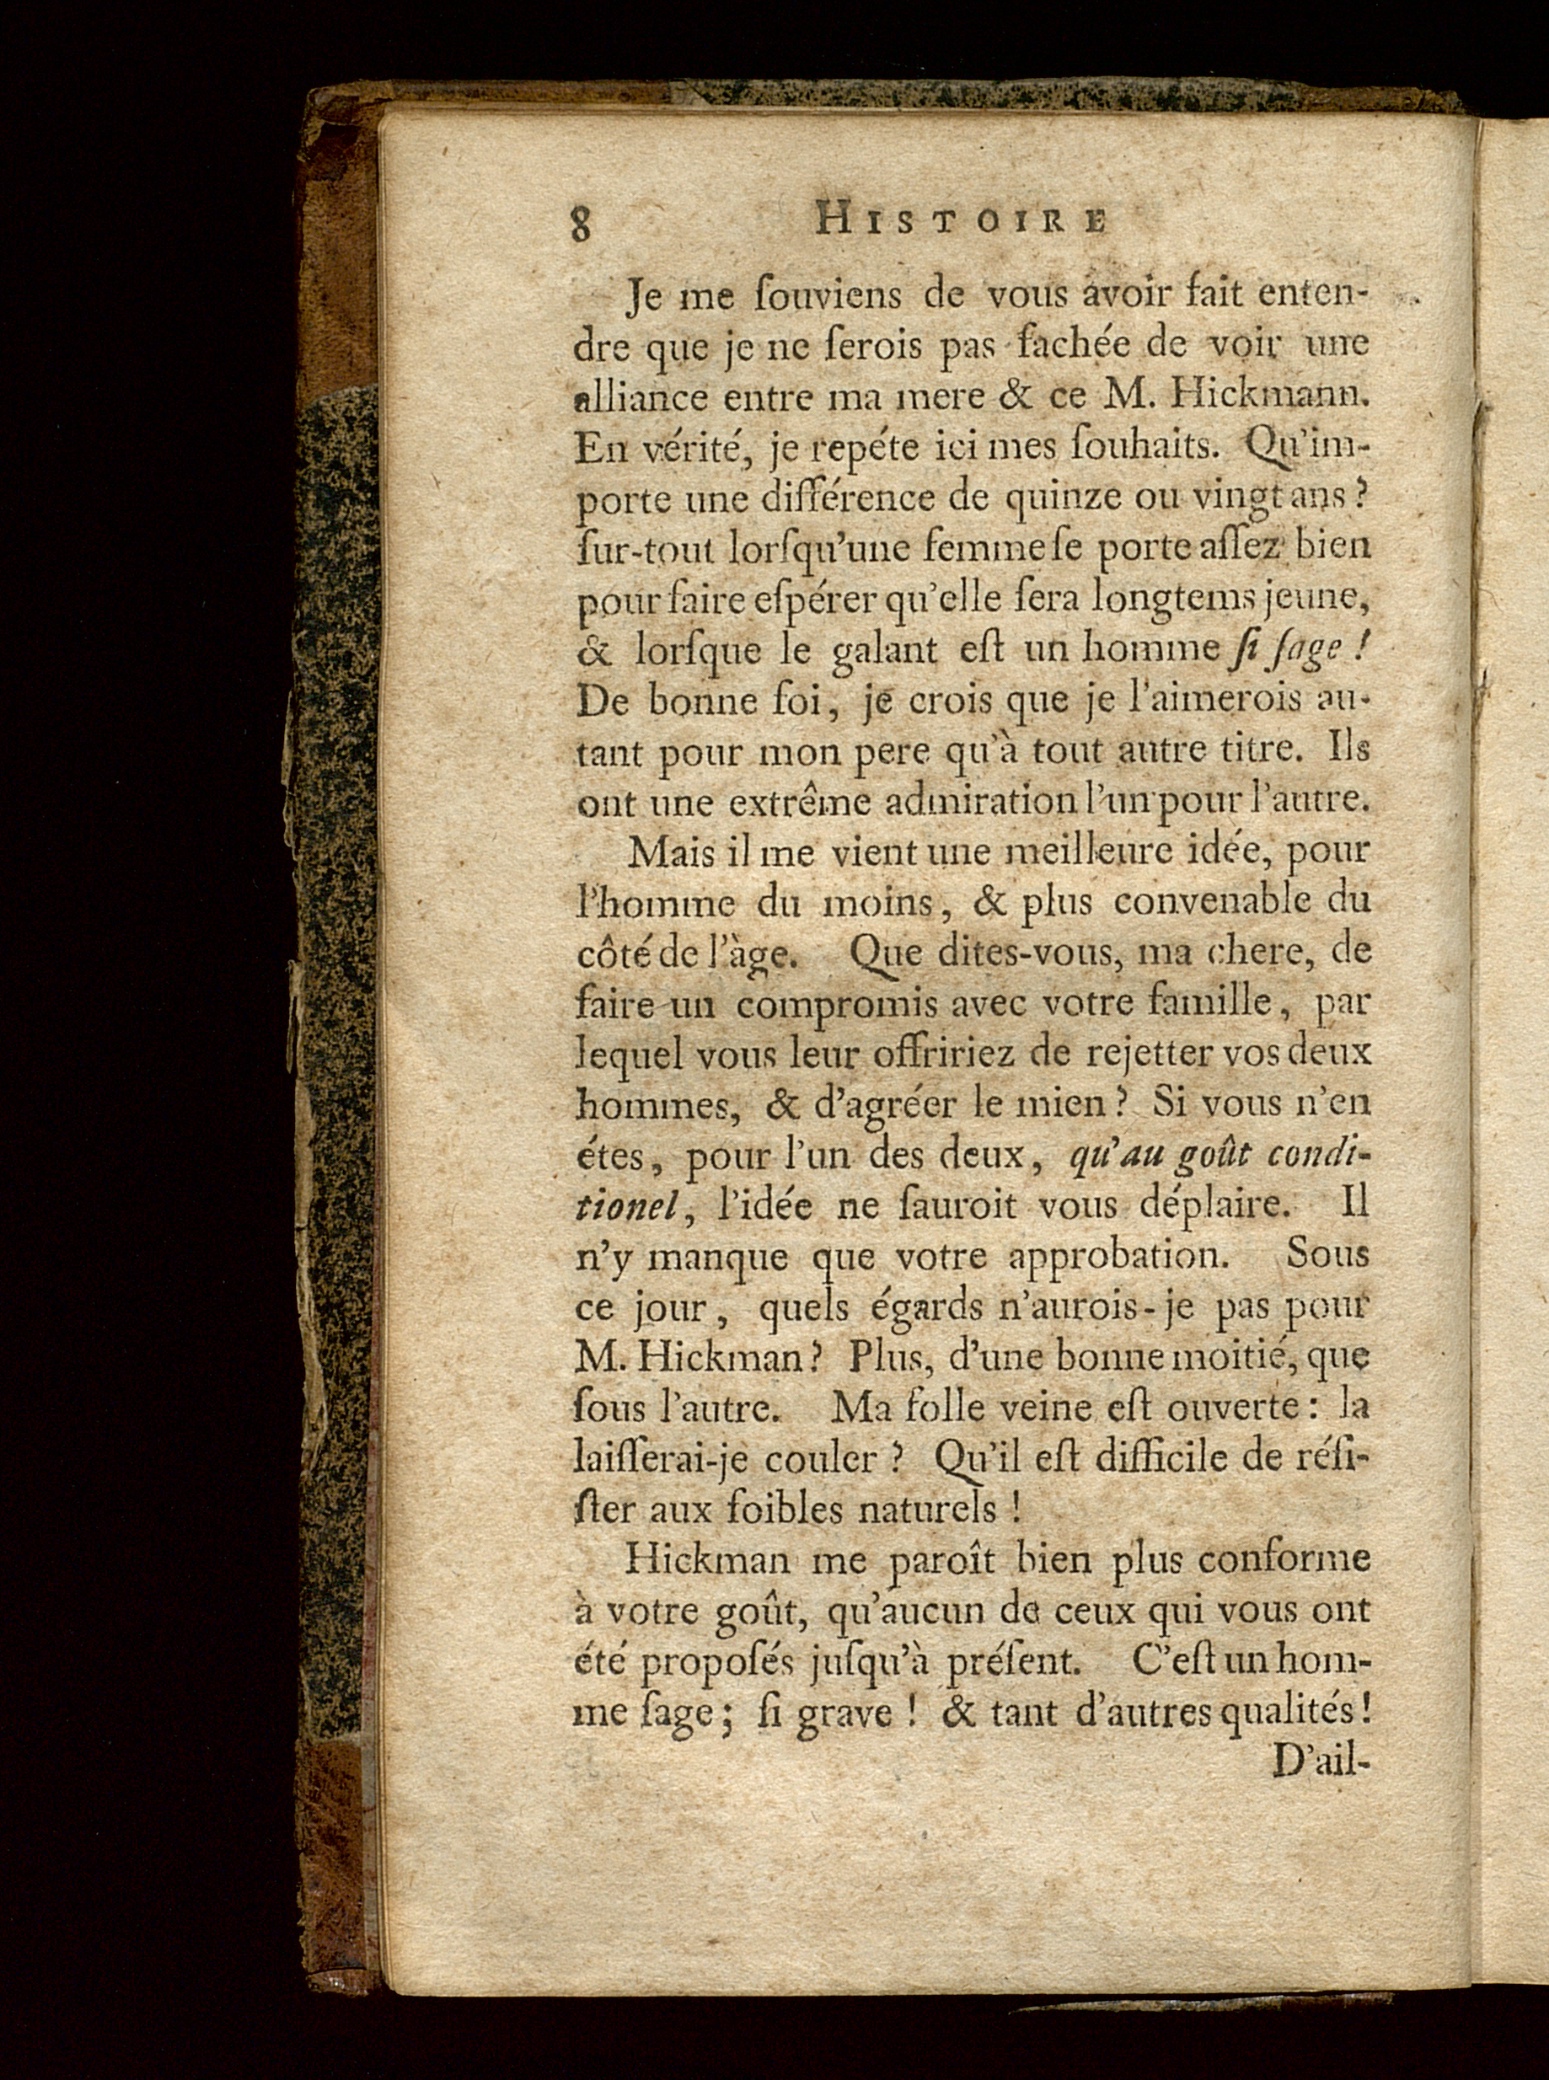 8 HISTOIRE
Je me ſouviens de vous avoir fait enten-
dre que je ne ſerois pas fachée de voir une
alliance entre ma mere & ce M. Hickmann.
En vérité, je repéte ici mes ſouhaits. Qu'im-
porte une différence de quinze ou vingt ans?
ſur-tout lorſqu'une femme ſe porte aſſez bien
pour faire eſpérer qu'elle ſera longtems jeune,
& lorſque le galant eſt un homme ſi ſage!
De bonne foi, je crois que je l'aimerois au-
tant pour mon pere qu'à tout autre titre. Ils
ont une extrême admiration l'un pour l'autre.
Mais il me vient une meilleure idée, pour
l'homme du moins, & plus convenable du
côté de l'àge. Que dites-vous, ma chere, de
faire un compromis avec votre famille, par
lequel vous leur offririez de rejetter vos deux
hommes, & d'agréer le mien? Si vous n'en
étes, pour l'un des deux, qu'au goût condi-
tionel, l'idée ne ſauroit vous déplaire. Il
n'y manque que votre approbation. Sous
ce jour, quels égards n'aurois-je pas pour
M. Hickman? Plus, d'une bonne moitié, que
ſous l'autre. Ma folle veine eſt ouverte: la
laiſſerai-je couler? Qu'il eſt difficile de réſi-
ſter aux foibles naturels!
Hickman me paroît bien plus conforme
à votre goût, qu'aucun de ceux qui vous ont
été propoſés juſqu'à préſent. C'eſt un hom-
me ſage; ſi grave! & tant d'autres qualités!
D'ail-